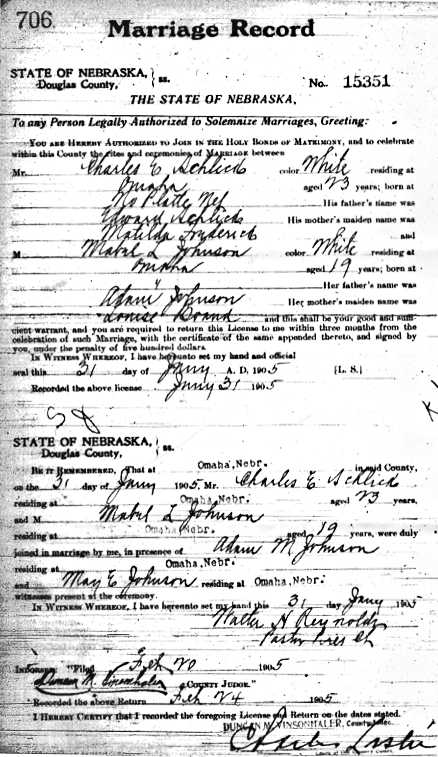 706
Marriage Record
STATE OF NEBRASKA,
Douglas County, } ss.
No. 15351
THE STATE OF NEBRASKA,
To any Person Legally Authorized to Solemnize Marriages, Greeting:
YOU ARE HEREBY AUTHORIZED TO JOIN IN THE HOLY BONDS OF MATRIMONY, and to celebrate
within this County the rites and ceremonies of MARRIAGE between
Mr. Charles E Schlick color White residing at
Omaha aged 23 years; born at
No Platte Neb His father's name was
Edward Schlick His mother's maiden name was
Matilda Frederick and
M Mabel L Johnson color White residing at
Omaha aged 19 years; born at
Her father's name was
Adam Johnson Her mother's maiden name was
Louise Brand and this shall be your good and suffi-
cient warrant, and you are required to return this License to me within three months from the
celebration of such Marriage, with the certificate of the same appended thereto, and signed by
you, under the penalty of five hundred dollars.
IN WITNESS WHEREOF, I have hereunto set my hand and official
seal this 31 day of Jany A. D. 1905 [L. S.]
Recorded the above license Jany 31 1905
STATE OF NEBRASKA,
Douglas County, } ss.
BE IT REMEMBERED, That at Omaha, Nebr. in said County,
on the 31 day of Jany 1905 Mr. Charles E Schlick
residing at Omaha, Nebr. aged 23 years,
and M Mabel L Johnson
residing at Omaha, Nebr. aged 19 years, were duly
joined in marriage by me, in presence of Adam M Johnson
residing at Omaha, Nebr.
and May E Johnson residing at Omaha, Nebr.
witnesses present at the ceremony.
IN WITNESS WHEREOF, I have hereunto set my hand this 31 day Jany 1905
Walter H Reynolds
Pastor Pres Ch
INFORMED "Filed Feb 20 1905
Duncan M. Vinsonhaler COUNTY JUDGE."
Recorded the above Return Feb 24 1905
I HEREBY CERTIFY that I recorded the foregoing License and Return on the dates stated.
DUNCAN M. VINSONHALER, County Judge.